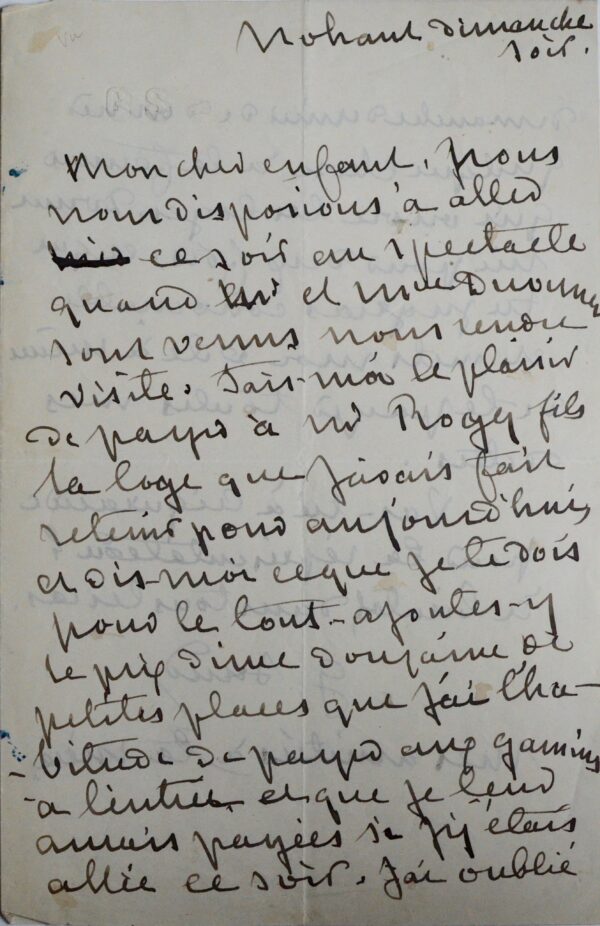 Nohant dimanche
soir.
Mon cher enfant, nous
nous disposions à aller
ce soir au spectacle
quand Mr et Mme Duvernet
sont venus nous rendre
visite. Fais-moi le plaisir
de payer à Mr Rogy fils
la loge que j'avais fait
retenir pour aujourd'hui,
et dis-moi ce que je te dois
pour le tout - ajoutes-y
le prix d'une douzaine de
petites places que j'ai l'ha-
bitude de payer aux gamins
à l'entrée et que je leur
aurais payées si j'y étais
allée ce soir. J'ai oublié